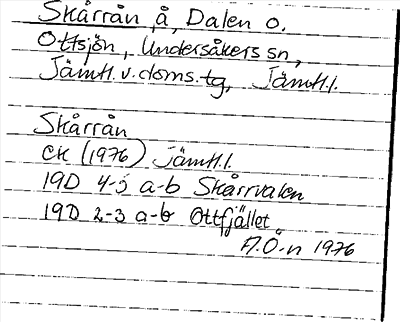 Skårrån, å, Dalen o.
Ottsjön, Undersåkers sn,
Jämtl. v. doms.tg, Jämtl.l.
Skårrån
CK (1976) Jämtl.l.
19D 4-5 a-b Skårrvalen
19D 2-3 a-b Ottfjället
A.Ö-n 1976